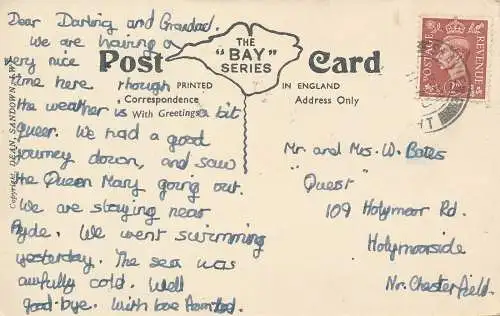 Dear Darling and Grandad.
We are having a
very nice
time here though
the weather is a bit
queer. We had a good
journey down, and saw
the Queen Mary going out.
We are staying near
Ryde. We went swimming
yesterday. The sea was
awfully cold. Well
good-bye. With love
Post Card
THE
"BAY"
SERIES
PRINTED IN ENGLAND
Correspondence Address Only
With Greetings
Copyright, DEAN, SANDOWN, I.W.
POSTAGE REVENUE
Mr. and Mrs. W. Bates
"Quest"
109 Holymoor Rd.
Holymoorside
Nr. Chesterfield.